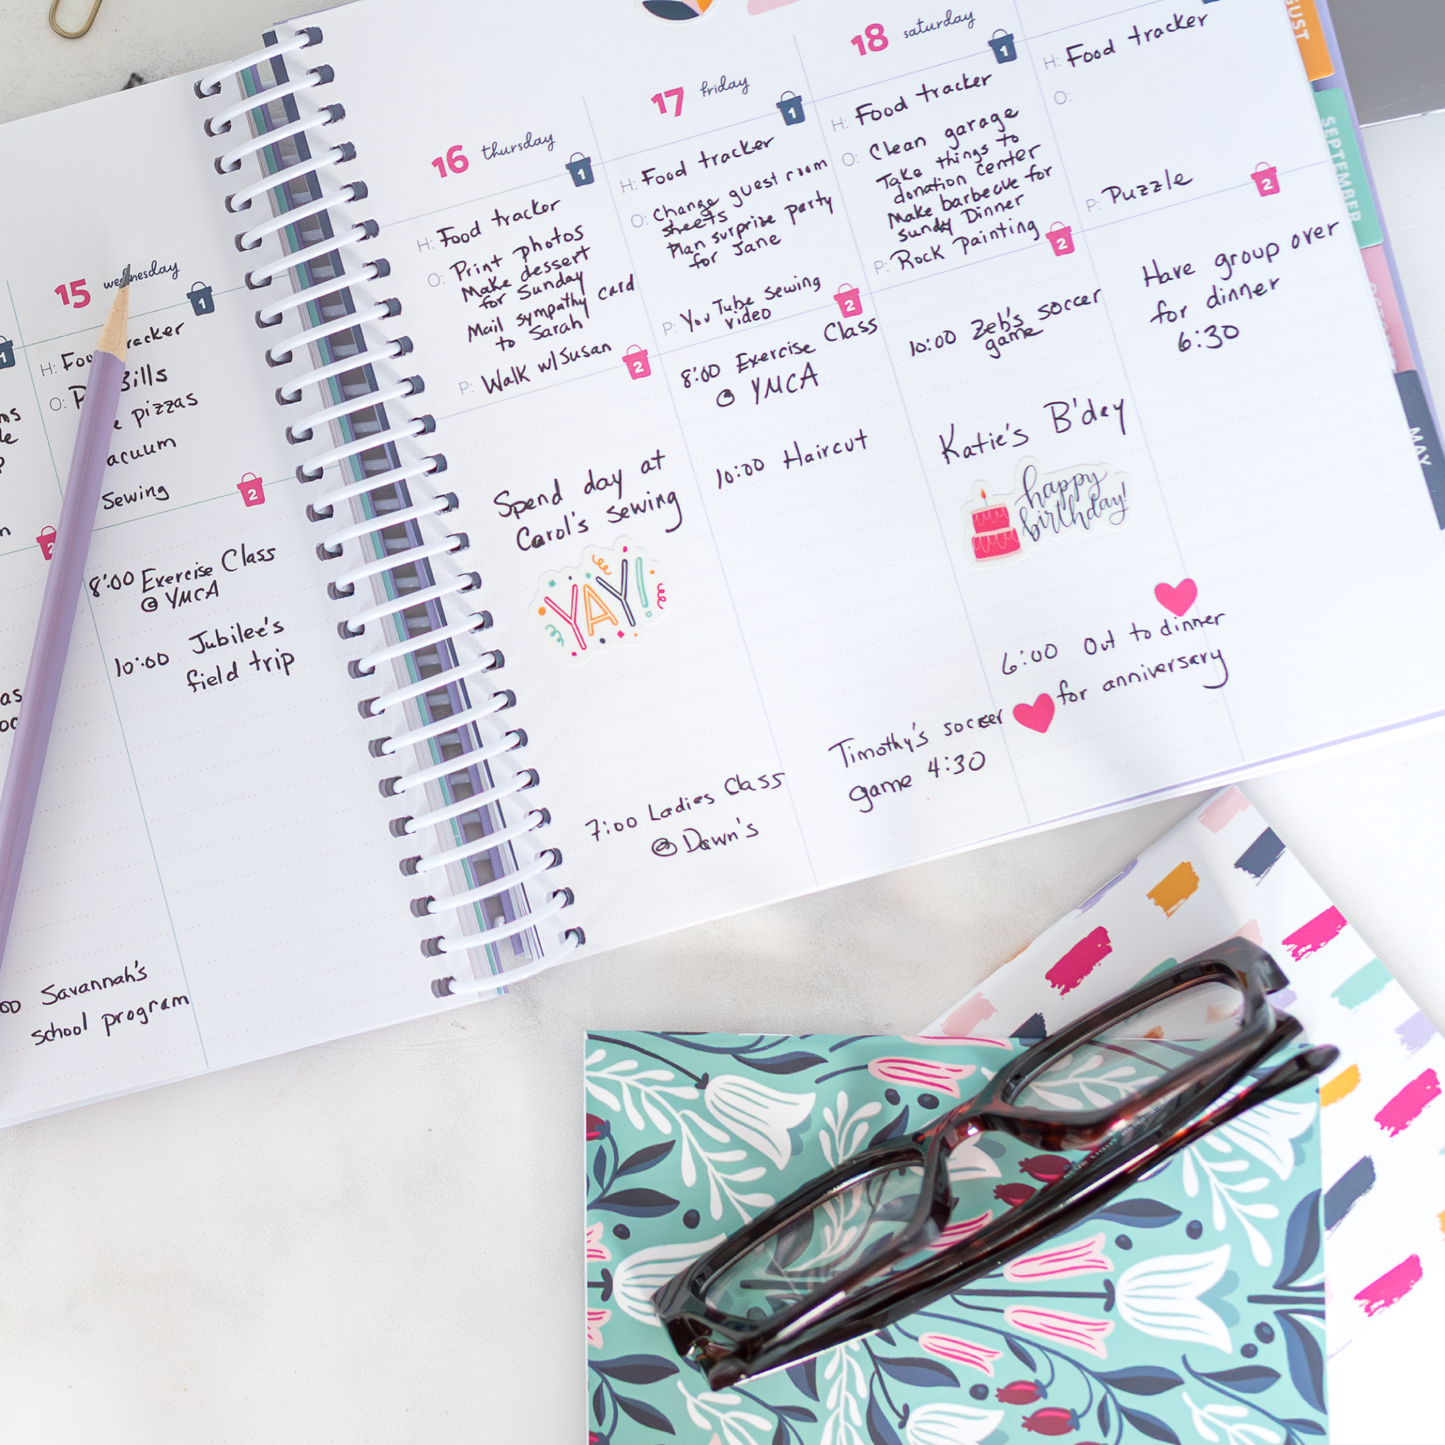 15 wednesday
1
H:
O:
Bills
pizzas
Sewing
2
8:00 Exercise Class
@ YMCA
10:00 Jubilee's
field trip
Savannah's
school program
16 thursday
1
H: Food tracker
O: Print photos
Make dessert
for Sunday
Mail sympathy card
to Sarah
P: Walk w/Susan
2
Spend day at
Carol's sewing
YAY!
7:00 Ladies Class
@ Dawn's
17 friday
1
H: Food tracker
O: Change guest room
sheets
Plan surprize party
for Jane
P: YouTube sewing
video
2
8:00 Exercise Class
@ YMCA
10:00 Haircut
Timothy's soccer
game 4:30
18 saturday
1
H: Food tracker
O: Clean garage
Take things to
donation center
Make barbecue for
sunday Dinner
P: Rock Painting
2
10:00 Zeb's soccer
game
Katie's B'day
happy
birthday!
6:00 Out to dinner
for anniversary
H: Food tracker
O:
P: Puzzle
2
Have group over
for dinner
6:30
SEPTEMBER
MAY